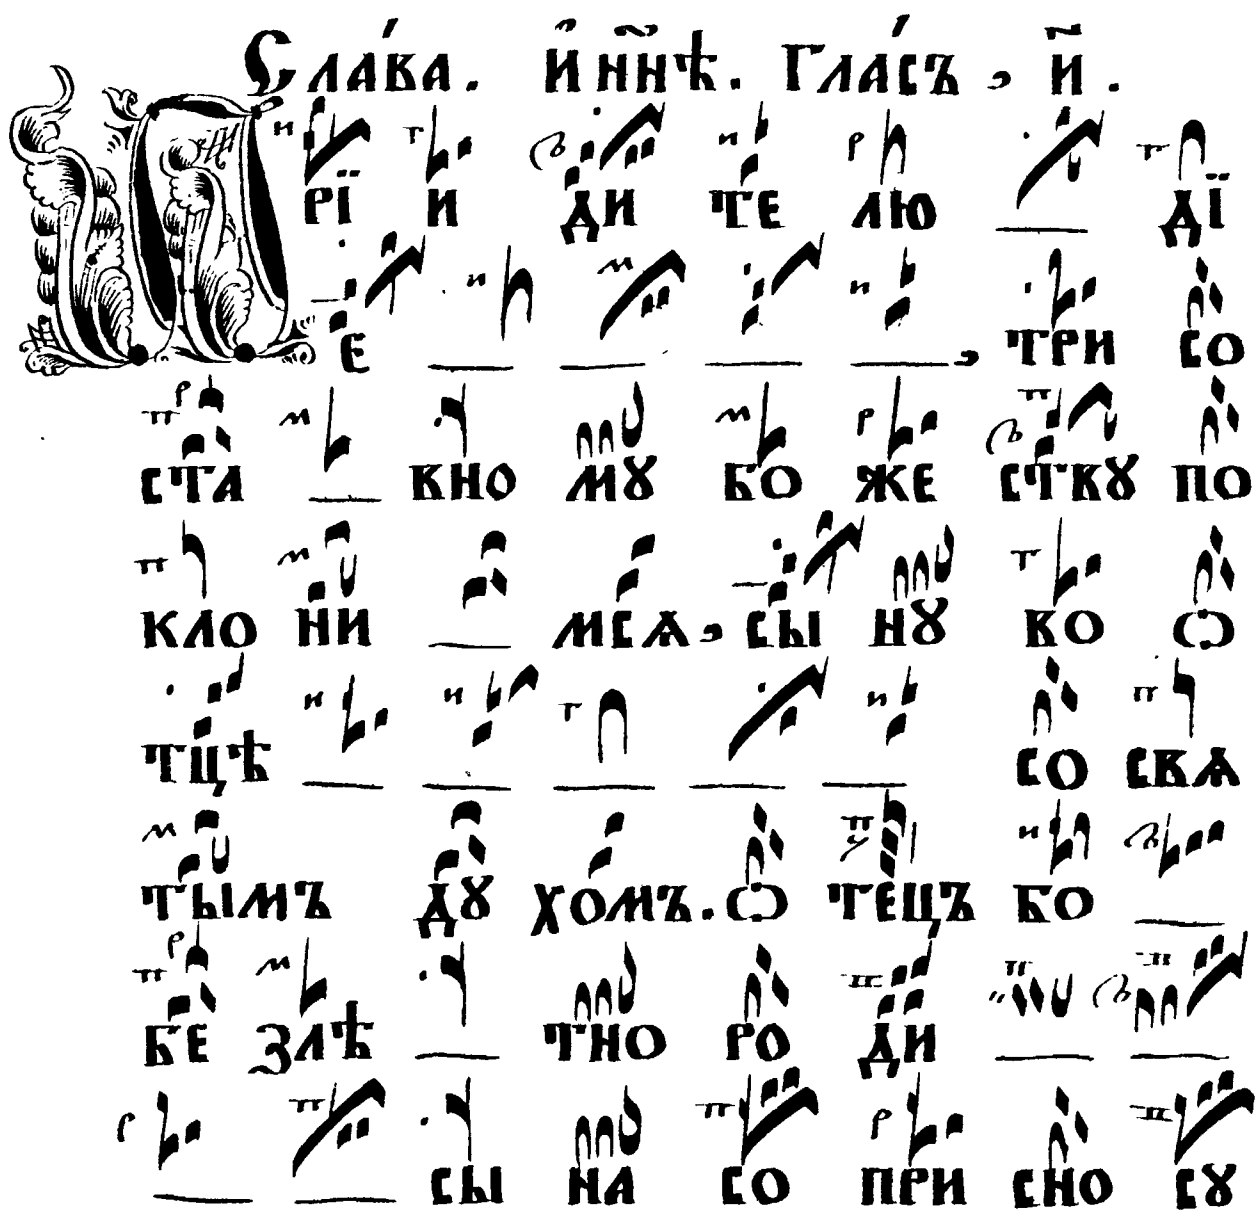 Сла́ва. И҆ нн҃ѣ. Гла́съ, и҃.
Прїидителюдїе, трисо
ставномꙋбожествꙋпо
клонимсѧ, сынꙋвоѡ
тцѣ сосвѧ
тымъ дꙋхомъ. ѡтецъбо
безлѣтнороди
сынасоприсносꙋ